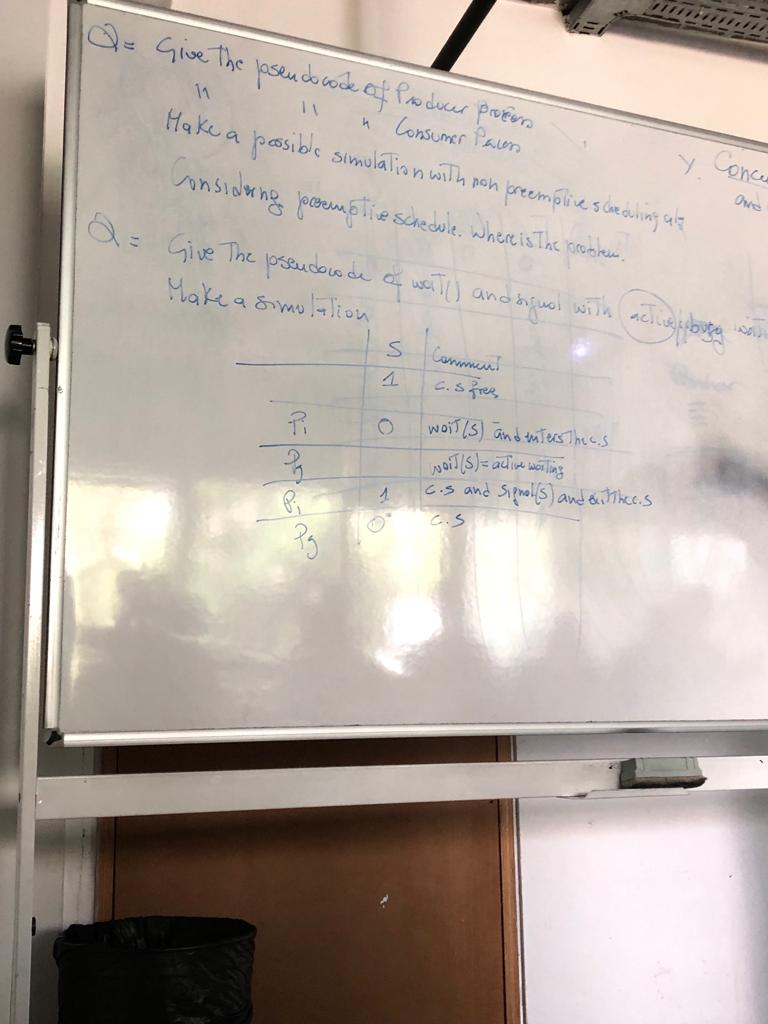 Q= Give The pseudocode of Producer process
" " " Consumer Process
Make a possible simulation with non preemptive scheduling alg
Considering preemptive schedule. Where is The problem.
Q= Give The pseudocode of wait() and signal with active/busy waiti
Make a simulation
S Comment
1 c.s free
Pi 0 wait(S) and enters The c.s
Pj wait(S)=active waiting
Pi 1 c.s and Signal(S) and exit The c.s
Pj 0 c.s
y. Concu
and